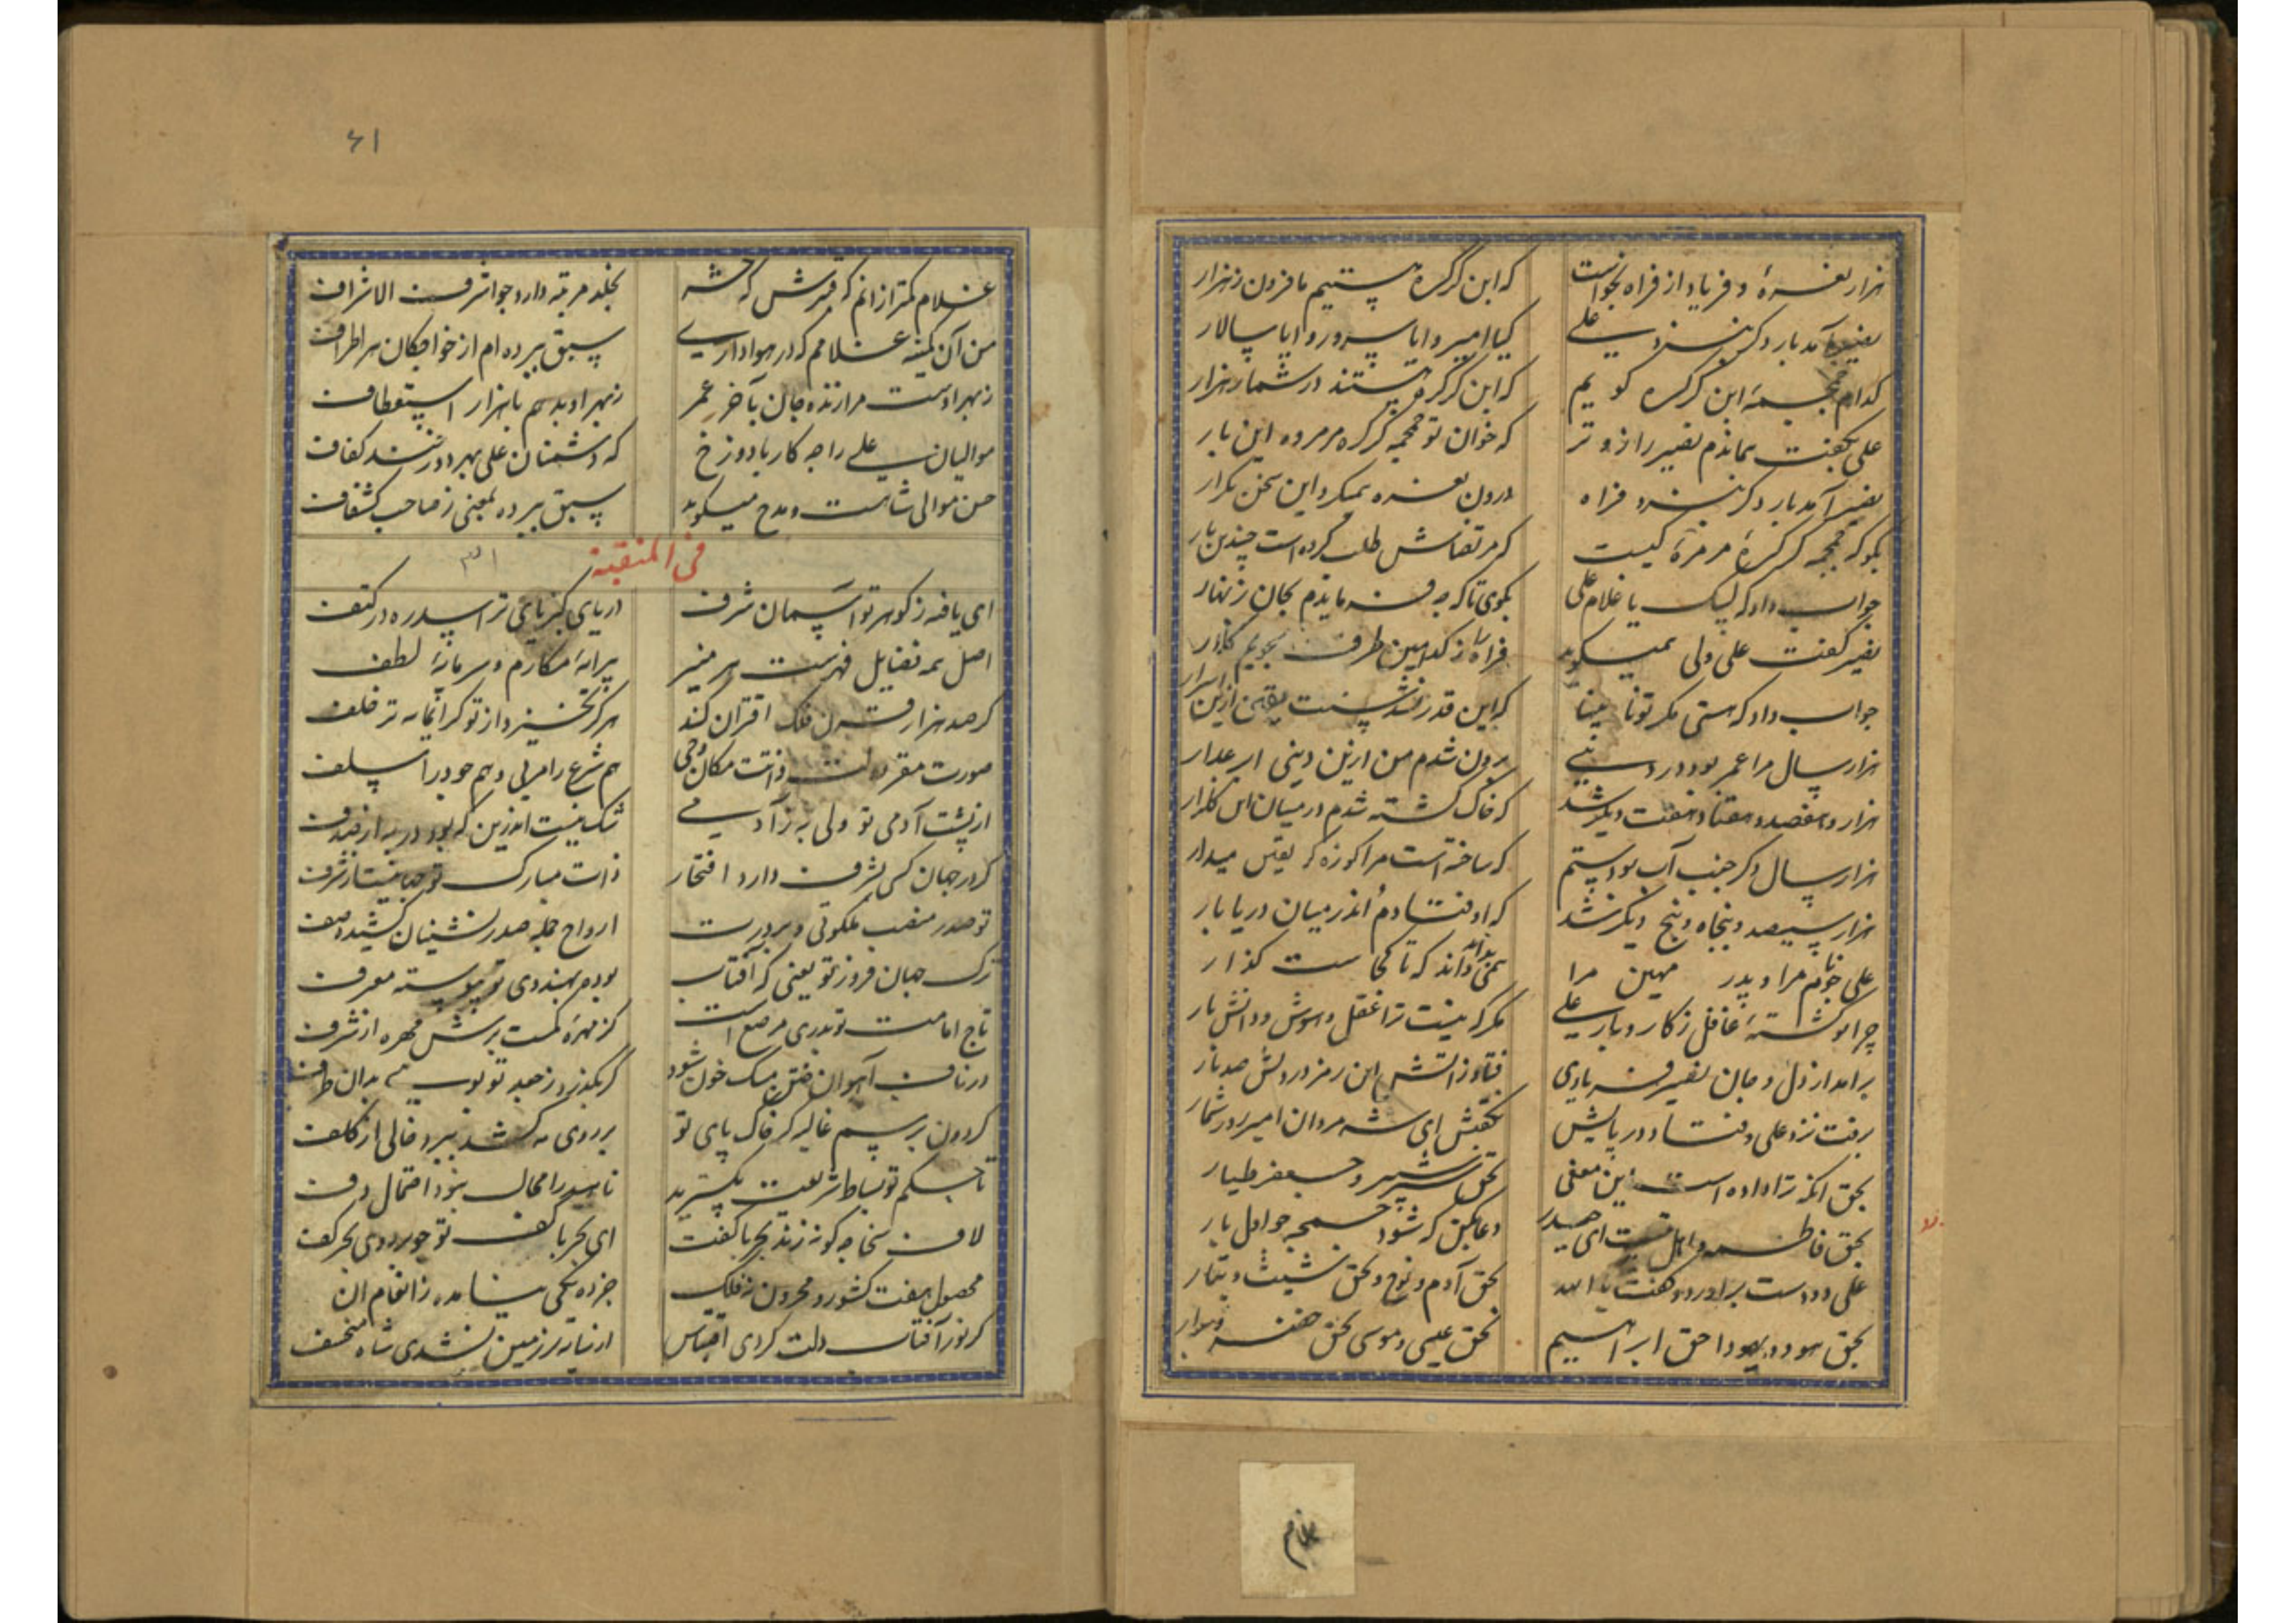 هزار نعره و فریاد از فراه بخواست که این کرکره هستیم ما فزون ز هزار
نصیر آمد بار دکر بنزد علی کیا امیر و ایا سرور و ایا سالار
کدام جمجمهٔ این کرکره کویم که این کرکره هستند در شمار هزار
علی بکفت بماندم نصیر را ز دو تر که خوان تو جمجمه کرکره مرمره این بار
نصیر آمد بار دکر بنزد فراه درون نعره همیکرد این سخن تکرار
بکو که جمجمه کرکرهٔ مرمرهٔ کیست که مرتضاش طلب کرده است چندین بار
جواب داد که لبیک یا غلام علی بکوی تا که چه فرمایدم بجان زنهار
نصیر کفت علی ولی همیکوید فراه را ز کدامین طرف بجویم کذار
جواب داد که هستی مکر تو نابینا که این قدر نشدستت یقین ازین اسرار
هزار سال مرا عمر بود در دنیی برون شدم من ازین دینی
هزار و هفصد و هفتاد و هفت دیکر شد که خاک کشته شدم در میان این
هزار سال دکر جنب آب بودستم که ساخته است مرا کوزه کر یقین میدار
هزار سیصد و پنجاه و پنج دیکر شد که اوفتادم اندر میان دریا بار
علی مرا و پدر مهین مرا همی داند که تا کجاست کذار
چرا تو کشتهٔ غافل ز کار و بار علی مکر که نیست ترا عقل و هوش و دانش یار
برامد از دل و جان نصیر فریادی فتاد ز آتش این رمز در دلش صد نار
برفت نزد علی و فتاد در پایش بکفتش ای شه مردان امیر در شمار
بحق انکه ترا داده است این معنی بحق شبر و شبیر و جعفر طیار
بحق فاطمه و اهل بیت ای حیدر دعا بکن که شود جمجمه چو اول بار
علی دو دست براورد و کفت یا الله بحق آدم و نوح و بحق شیث و تیمار
بحق هود و یهودا حق ابراهیم بحق عیسی و موسی بحق خضر
غلام
۶۱
غلام کمتر از انم که قنبرش که حشر بخلد مرتبه دارد چو اشرف الاشراف
من آن کمینه غلامم که در هواداری سبق ببرده ام از خواجکان هر اطراف
ز بهر اوست مرا زنده جان بآخر عمر ز بهر او بدهم با هزار استعطاف
موالیان علی را چه کار با دوزخ که دشمنان علی بهر دوزخند کفاف
حسن موالی شاست و مدح میکوید سبق ببرده بمعنی ز صاحب کشاف
فی المنقبة
۳۱
ای یافته ز کوهر تو آسمان شرف دریای کبریای ترا سدره در کنف
اصل همه فضایل فهرست هر هنر پیرایهٔ مکارم و سرمایهٔ لطف
کر صد هزار قرن فلک اقتران کند هرکز نخیزد از تو کرانمایه تر خلف
صورت مقر دولت و ذاتت مکان وحی هم شرع را مربی و هم جود را سلف
از پشت آدمی تو ولی به ز آدمی شک نیست اندرین که بود در به از صدف
کر در جهان کسی بشرف دارد افتخار ذات مبارک تو جهانیست از شرف
تو صدر منصب ملکوتی و بر درت ارواح جمله صدرنشینان کشیده صف
ترک جهان فروز تو یعنی که آفتاب بوده بهندوی تو پیوسته معرف
تاج امامت تو بدری مرصع است کز مهرهٔ کمست برش مهره از شرف
در ناف آهوان ختن مشک خون شود کر بکذرد ز جید تو بویی بدان طرف
کردون برسم غالیه کر خاک پای تو بر روی مه کشد نبرد خالی از کلف
تا حکم تو بساط شریعت بکسترید ناهید را مجال نبود احتمال دف
لاف سخا چه کونه زند بحر با کفت ای بحر با کف تو چو بر روی بحر کف
محصول هفت کشور و مخزون نه فلک جز ده یکی نیامده ز انعام ان
کر نور آفتاب دلت کردی اقتباس از سایه بر زمین نشدی شاه منخسف